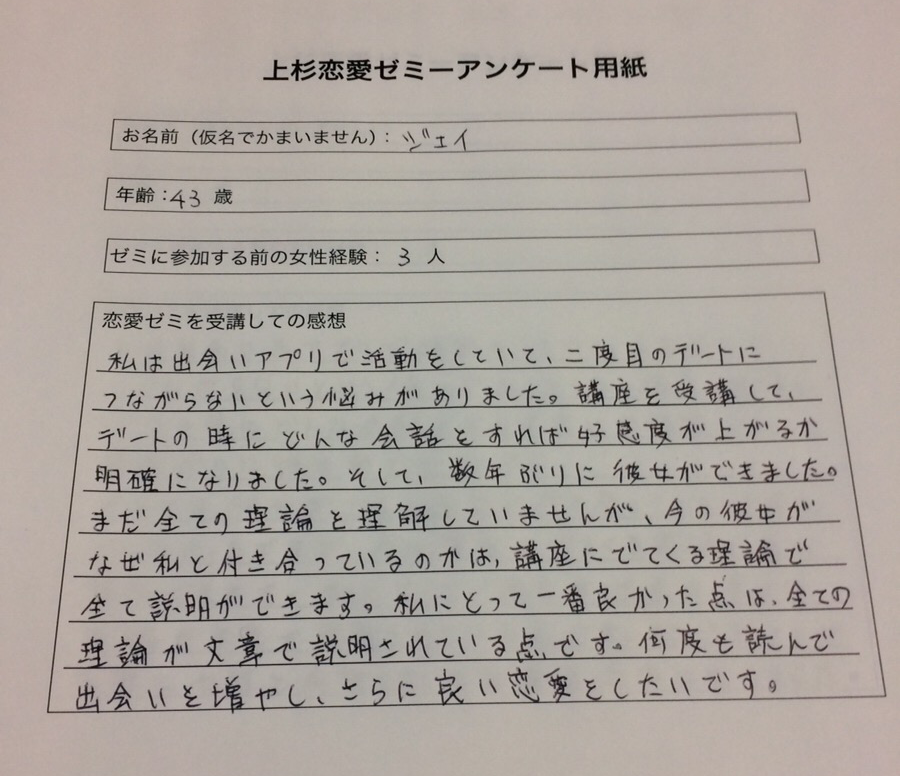 上杉恋愛ゼミーアンケート用紙
お名前（仮名でかまいません）：ジェイ
年齢：43 歳
ゼミに参加する前の女性経験： 3 人
恋愛ゼミを受講しての感想
私は出会いアプリで活動をしていて、二度目のデートに
つながらないという悩みがありました。講座を受講して、
デートの時にどんな会話をすれば好感度が上がるか
明確になりました。そして、数年ぶりに彼女ができました。
まだ全ての理論を理解していませんが、今の彼女が
なぜ私と付き合っているのかは、講座にでてくる理論で
全て説明ができます。私にとって一番良かった点は、全ての
理論が文章で説明されている点です。何度も読んで
出会いを増やし、さらに良い恋愛をしたいです。